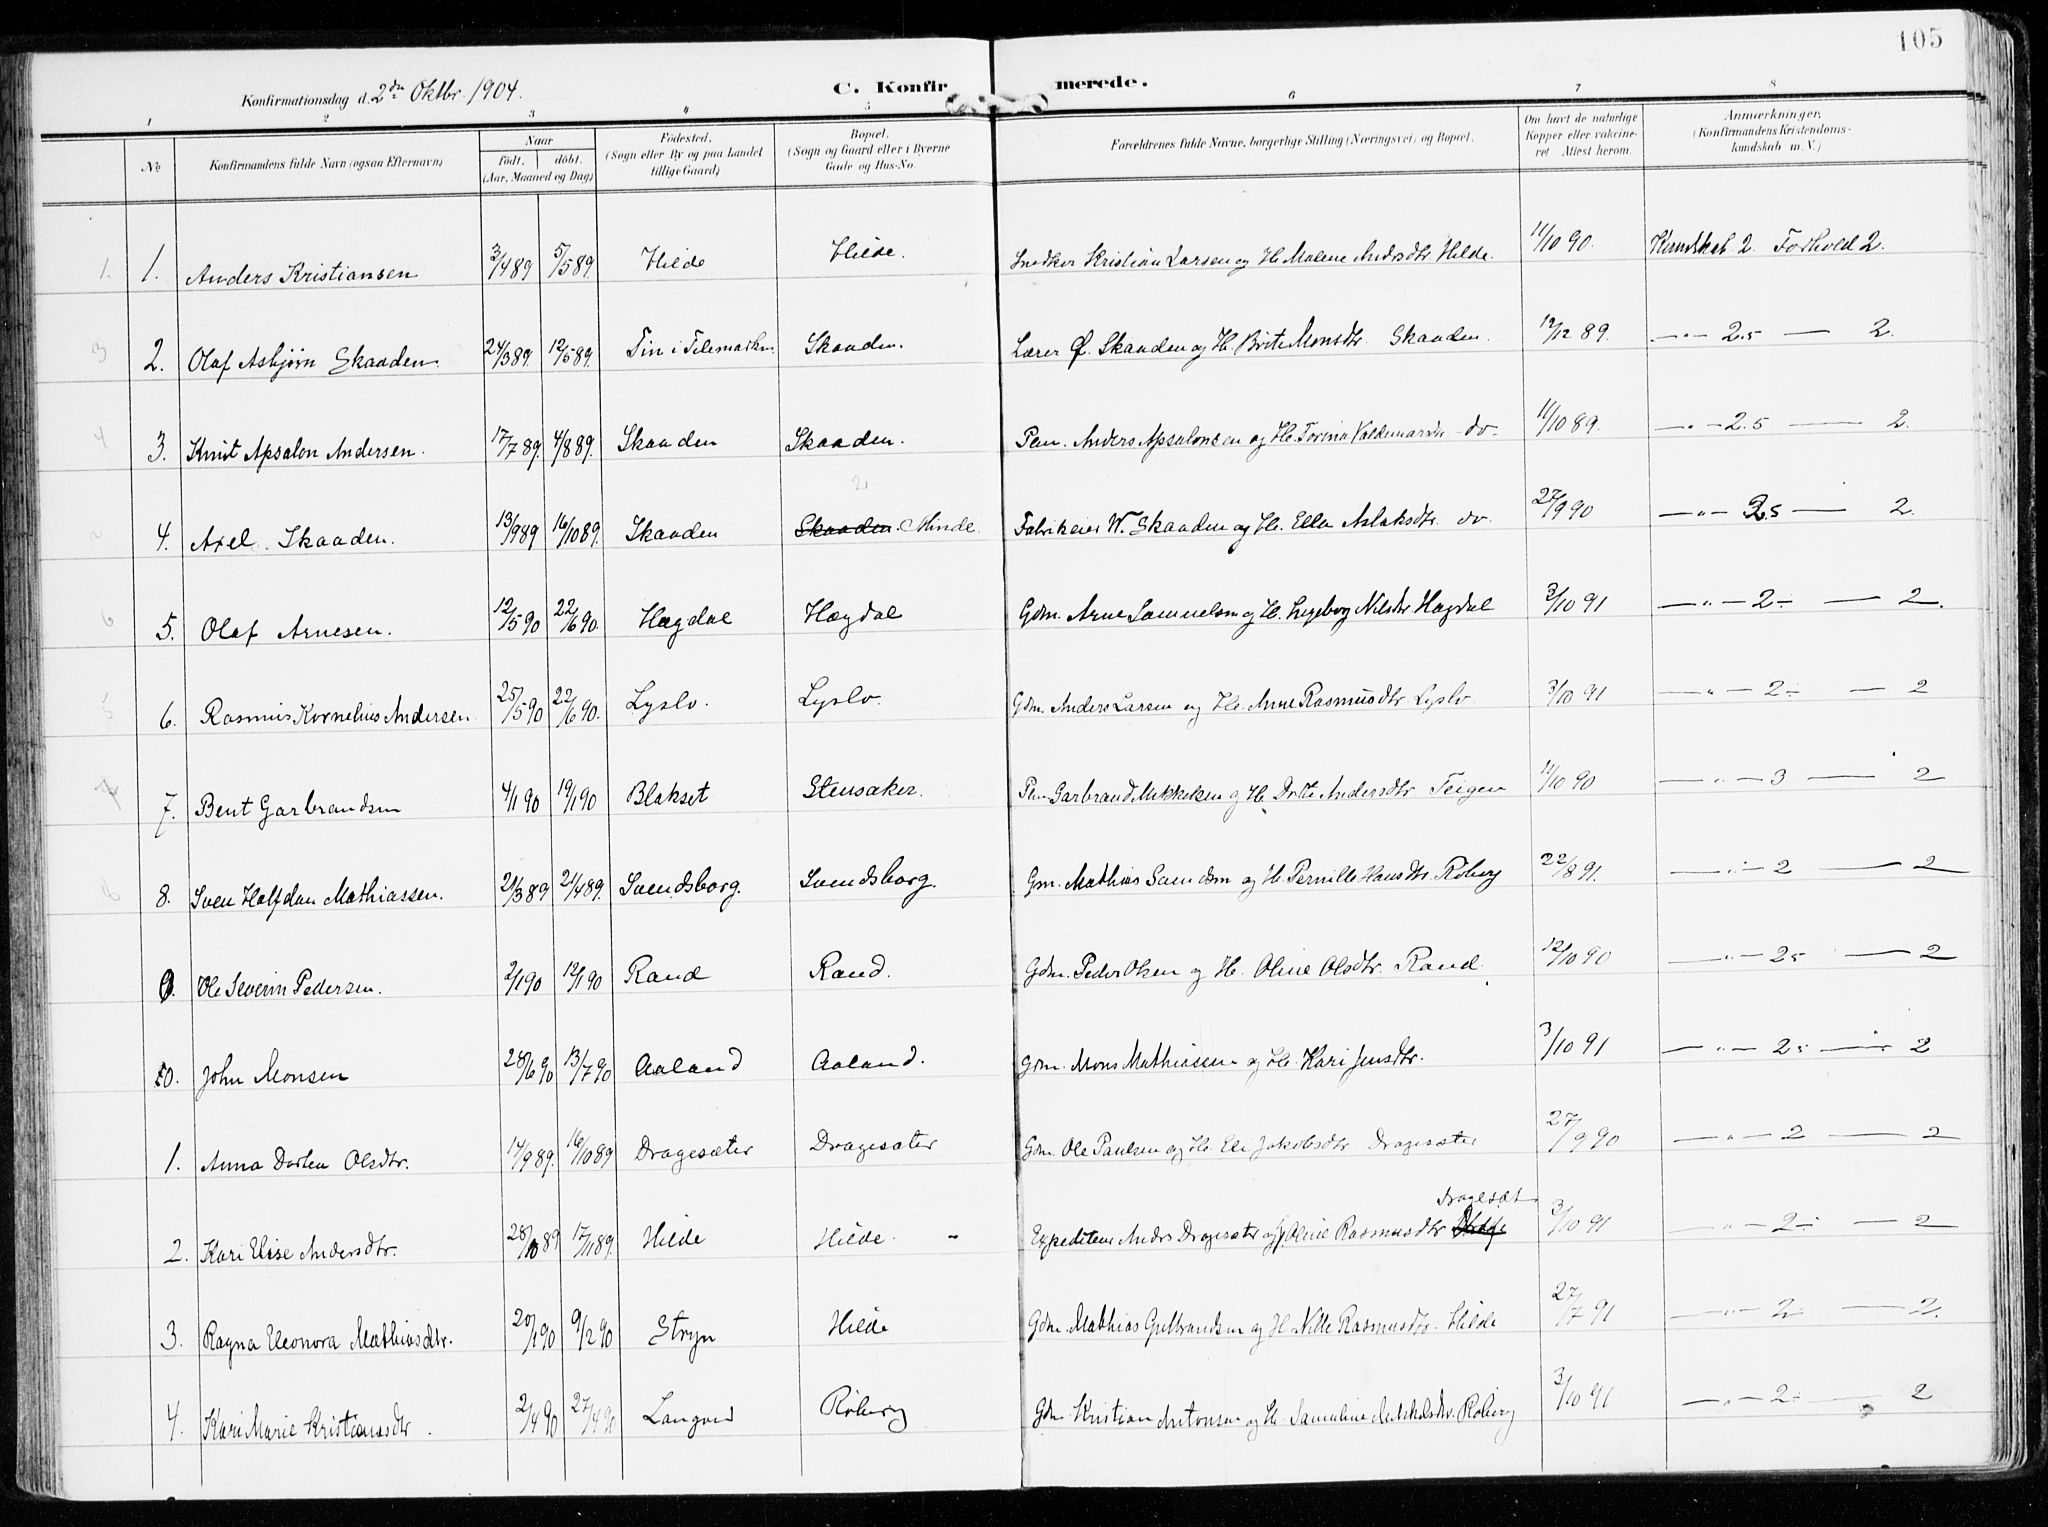 105
Konfirmationsdag d. 2den Oktbr. 1904. C. Konfirmerede.
1 2 3 4 5 6 7 8
No Konfirmandens fulde Navn (ogsaa Efternavn) Naar født. døbt. (Aar, Maaned og Dag) Fødested. (Sogn eller By og paa Landet tillige Gaard) Bopæl. (Sogn og Gaard eller i Byerne Gade og Hus-No. Forældrenes fulde Navne, borgerlige Stilling (Næringsvei) og Bopæl. Om havt de naturlige Kopper eller vakcineret Attest herom. Anmærkninger, (Konfirmandens Kristendomskundskab m. V.)
1. 1. Anders Kristiansen 3/4 89 5/5 89. Hilde Hilde. Snedker Kristian Larsen og H. Malene Andrsdtr. Hilde. 11/10 90. Kundskab 2. Forhold 2.
3 2. Olaf Asbjørn Skaaden. 24/3 89. 12/5 89. Tin i Telemarken Skaaden. Lærer O. Skaaden og H. Brite Monsdtr. Skaaden. 12/12 89. — " — 2.5 — 2.
4 3. Knut Apsalon Andersen. 17/7 89. 4/8 89. Skaaden Skaaden. Anders Apsalonsen og H. Torina Valdemarsdtr. do. 11/10 89. — " — 2.5 — 2.
2 4. Axel Skaaden. 13/9 89 16/10 89. Skaaden Skaaden. Minde. 2 Fabrikeier W. Skaaden og H. Ella Aslaksdtr. do. 27/9 90 — " — 2.5 — 2.
6 5. Olaf Arnesen. 12/5 90 22/6 90. Hægdal Hægdal Gdm. Arne Samuelsen og H. Ingeborg Nilsdtr. Hægdal 3/10 91 — " — 2 — 2.
5 6. Rasmus Kornelius Andersen. 25/5 90 22/6 90. Lyslo. Lyslo. Gdm. Anders Larsen og H. Anne Rasmusdtr. Lyslo. 3/10 91 — " — 2 — 2
7 7. Bent Garbrandsen 4/1 90 19/1 90 Blakset Stensaker. Garbrand Mikkelsen og H. Andersdtr. Teigen 11/10 90 — " — 3 — 2
8 8. Sven Halfdan Mathiassen. 21/3 89 21/4 89. Svendsborg. Svendsborg. Gm. Mathias Svendsen og H. Pernille Hansdtr. Roberg 22/8 91. — " — 2 — 2
9. Ole Severin Pedersen. 2/1 90 12/1 90 Rand Rand. Gdm. Peder Olsen og H. Oline Olsdtr. Rand. 12/10 90 — " — 2.5 — 2
10. John Monsen 28/6 90 13/7 90 Aaland Aaland. Gdm. Mons Mathiassen og H. Kari Jensdtr. 3/10 91 — " — 2 — 2
1. Anna Dortea Olsdtr. 14/9 89. 16/10 89 Dragesæter Dragesæter Gdm. Ole Paulsen og H. Eli Jakobsdtr. Dragesæter 27/9 90 — " — 2 — 2
2. Kari Elise Andersdtr. 28/10 89 17/11 89. Hilde Hilde. " Expeditør Andrs Dragesæter og Oline Rasmusdtr. Dragesæt 3/10 91 — " — 2 — 2
3. Ragna Eleonora Mathiasdtr. 20/1 90 9/2 90 Stryn Hilde Gdm. Mathias Gulbrandsen og H. Nille Rasmusdtr. Hilde 27/7 91 — " — 2 — 2.
4. Kari Marie Kristiansdtr. 2/4 90 27/4 90 Langvei Roberg Gdm. Kristian Antonsen og H. Samuline Roberg 3/10 91 — " — 2 — 2